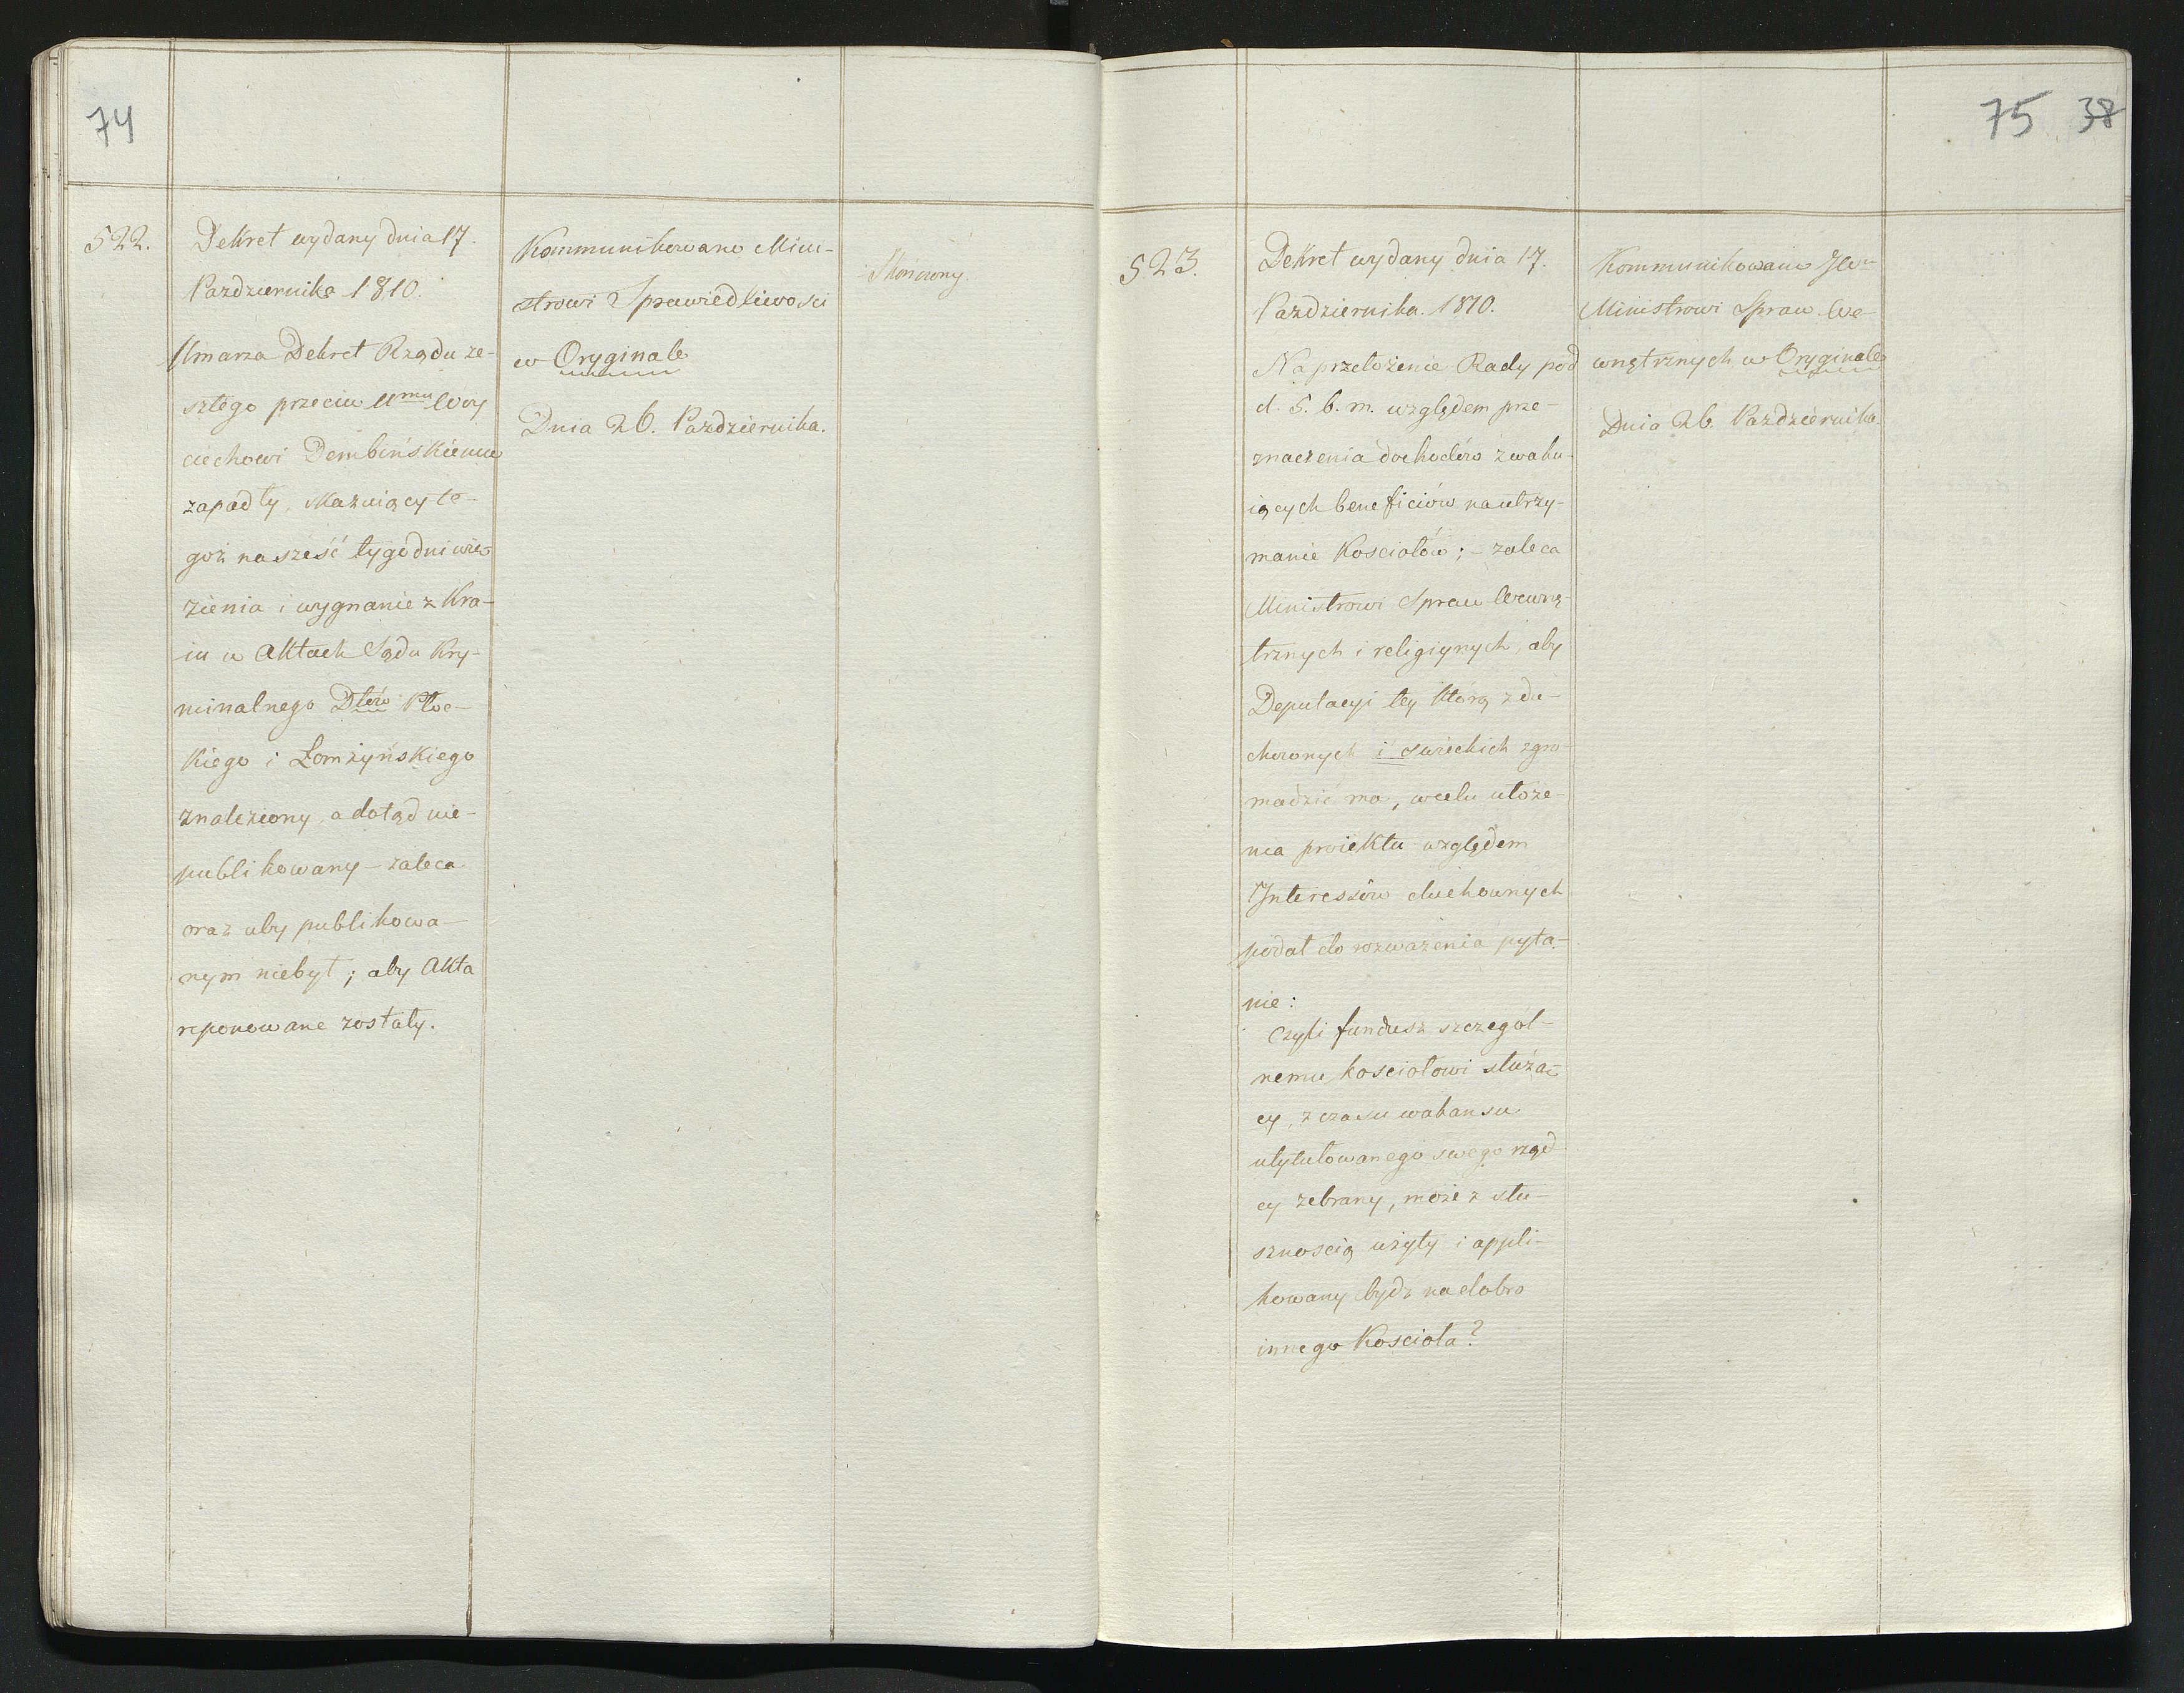 74
522.
Dekret wydany dnia 17.
Pazdziernika 1810.
Umarza Dekret Rządu ze-
szłego przeciw Umu Woy
ciechowi Dembińskiemu
zapadły, skazuiący te-
goż na sześć tygodni wię
zienia i wygnanie z Kra-
iu w Aktach Sądu Kry-
minalnego Dtów Płoc-
kiego i Łomżyńskiego
znaleziony a dotąd nie-
publikowany – zaleca
oraz aby publikowa-
nym niebył; aby Akta
reponowane zostały.
Kommunikowano Mini-
strowi Sprawiedliwosci
w Oryginale
Dnia 26. Pazdziernika.
Skończony.
75 38
523.
Dekret wydany dnia 17.
Pazdziernika. 1810.
Na przełożenie Rady pod
d. 5. b. m. względem prze-
znaczenia dochodów z waku-
iących beneficiów na utrzy-
manie Kosciołów; – zaleca
Ministrowi Spraw Wewnę-
trznych i religiynych, aby
Deputacyi tey którą z du-
chownych i swieckich zgro-
madzić ma, w celu ułoże-
nia proiektu względem
Interessów duchownych
podał do rozważenia pyta-
nie:
Czyli fundusz szczegol-
nemu kosciołowi służą-
cy, z czasu wakansu
utytułowanego swego rząd-
cy zebrany, może z słu-
sznoscią użyty i appli-
kowany bydz na dobro
innego Kosciola?
Kommunikowano JWu
Ministrowi Spraw We-
wnętrznych w Oryginale
Dnia 26. Pazdziernika.